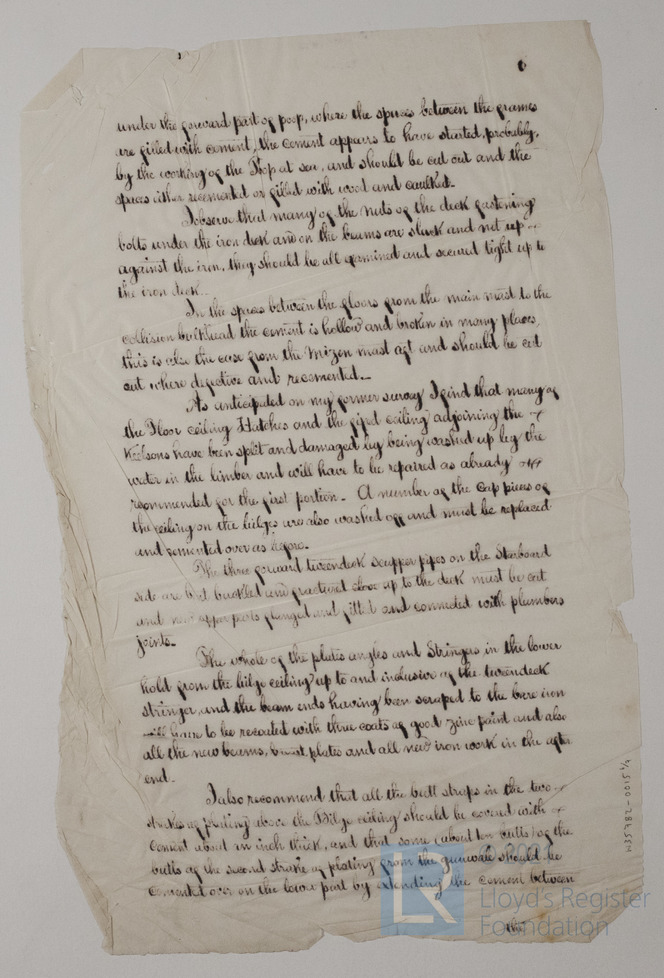 6
under the forward part of poop, where the spaces between the frames
are filled with cement, the cement appears to have started, probably,
by the working of the Poop at sea, and should be cut out and the
spaces either recemented or filled with wood and caulked.
I observe that many of the nuts of the deck fastening
bolts under the iron deck and on the beams are slack and not up
against the iron, they should be all examined and secured tight up to
the iron deck.
In the spaces between the floors from the main mast to the
collision bulkhead the cement is hollow and broken in many places,
this is also the case from the Mizen mast aft and should be cut
out where defective and recemented.
As anticipated on my former survey I find that many of
the Floor ceiling Hatches and the fixed ceiling adjoining the
Keelsons have been split and damaged by being washed up by the
water in the limber and will have to be repaired as already
recommended for the first portion. A number of the Cap pieces of
the ceiling on the bilges are also washed off and must be replaced
and cemented over as before.
The three forward tweendeck scupper pipes on the Starboard
side are bent buckled and fractured close up to the deck must be cut
and new upper parts flanged and fitted and connected with plumbers
joints.
The whole of the plates angles and Stringers in the lower
hold from the bilge ceiling up to and inclusive of the tweendeck
stringer, and the beam ends having been scraped to the bare iron
will have to be recoated with three coats of good zinc paint and also
all the new beams, breast plates and all new iron work in the after
end.
I also recommend that all the butt straps in the two
strakes of plating above the Bilge ceiling should be covered with
cement about an inch thick, and that some (about ten butts) of the
butts of the second strake of plating from the gunwale should be
cemented over on the lower part by extending the cement between
the
H35782-0015 1/4
© 2021
LR
Lloyd's Register
Foundation